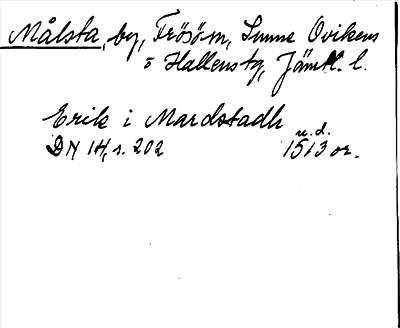 Målsta, by, Frösö sn, Sunne Ovikens
o Hallens tg, Jämtl. l.
Erik i Mardstadh
u. d.
DN 14, s. 202 1513 or.